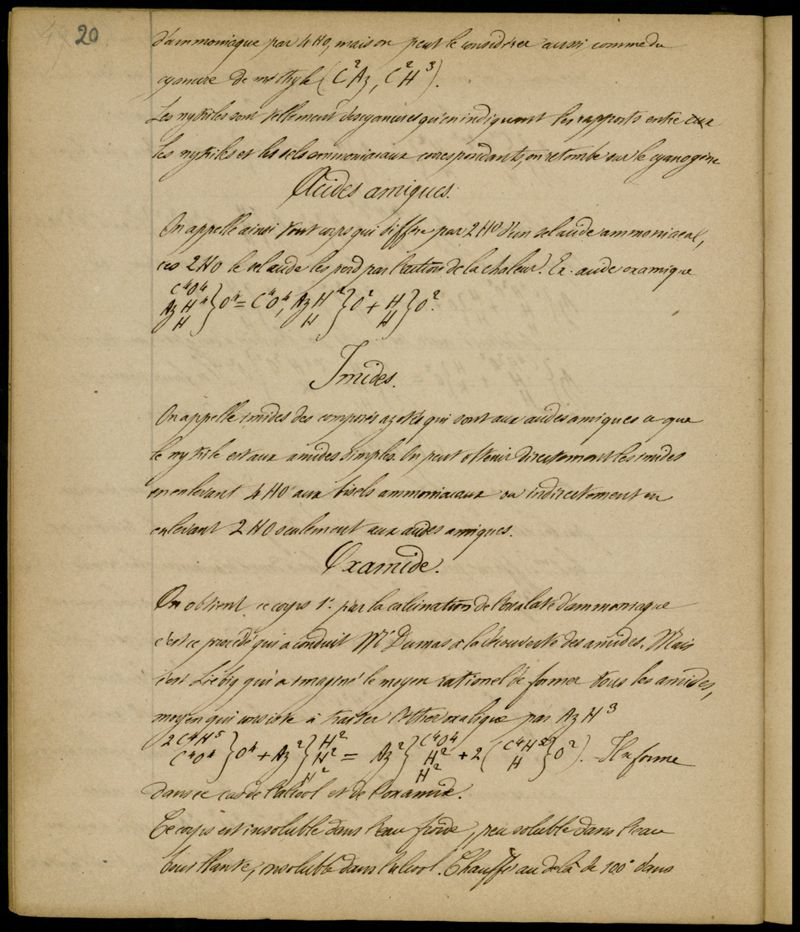 20
d'ammoniaque par 4HO, mais on peut le considérer aussi comme du
cyanure de méthyle (C²Az, C²H³).
Les nytriles sont tellement des cyanures qu'en indiquant les rapports entre
les nytriles et les sels ammoniacaux correspondants, on retombe sur le cyanogène
Acides amiques.
On appelle ainsi tout corps qui diffère par 2HO d'un sel acide ammoniacal,
ces 2HO le sel acide les perd par l'action de la chaleur. Ex. acide oxamique
C⁴O⁴
Az H⁴ } O⁴ = C⁴O⁴, Az H² } O² + H } O².
H H H
Imides.
On appelle imides des composés azotés qui sont aux acides amiques ce que
le nytrile est aux amides simples. On peut obtenir directement les imides
en enlevant 4HO aux bisels ammoniacaux ou indirectement en
enlevant 2HO seulement aux acides amiques.
Oxamide.
On obtient ce corps 1º. par la calcination de l'oxalate d'ammoniaque
c'est ce procédé qui a conduit Mr Dumas à la découverte des amides. Mais
c'est Liebig qui a imaginé le moyen rationel de former tous les amides,
moyen qui consiste à traiter l'éther oxalique par AzH³
2C⁴H⁵ } O⁴ + Az² { H² = Az² { C⁴O⁴ + 2 ( C⁴H⁵ } O² ). Il se forme
C⁴O⁴ H² H² H
H² H²
dans ce cas de l'alcool et de l'oxamide.
Ce corps est insoluble dans l'eau froide, peu soluble dans l'eau
bouillante, insoluble dans l'alcool. Chauffé au delà de 100º dans